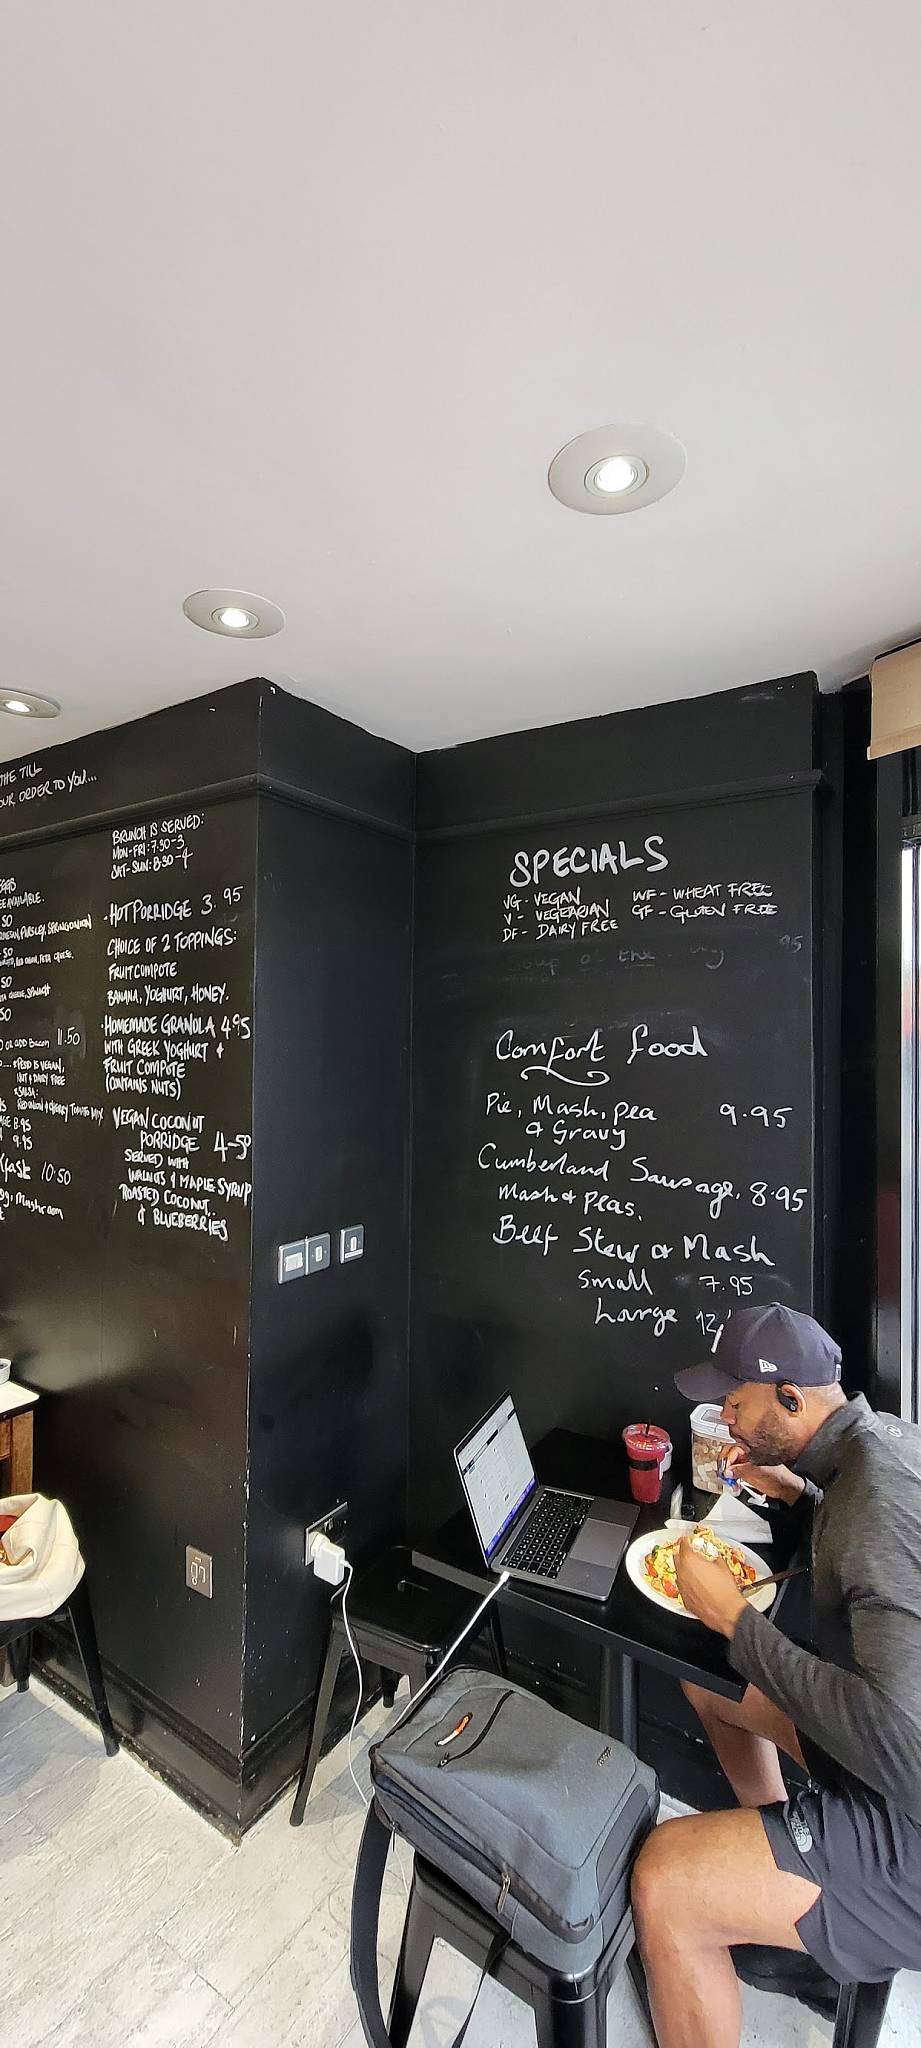 THE TILL
OUR ORDER TO YOU....
EGGS
AVAILABLE.
50
PARSLEY, SPRING ONION
50
RED ONION, FETA CHEESE.
50
CHEESE, SPINACH
50
OR ADD BACON 11.50
PESTO IS VEGAN,
NUT & DAIRY FREE
SALSA:
RED ONION & CHERRY TOMATO MIX
8.95
9.95
10.50
Mushroom
BRUNCH IS SERVED:
MON-FRI: 7.30-3
SAT-SUN: 8:30-4
·HOT PORRIDGE 3.95
CHOICE OF 2 TOPPINGS:
FRUIT COMPOTE
BANANA, YOGHURT, HONEY.
·HOMEMADE GRANOLA 4.95
WITH GREEK YOGHURT &
FRUIT COMPOTE
(CONTAINS NUTS)
VEGAN COCONUT
PORRIDGE 4-50
SERVED WITH
WALNUTS & MAPLE SYRUP
ROASTED COCONUT..
& BLUEBERRIES
SPECIALS
VG - VEGAN WF - WHEAT FREE
V - VEGETARIAN GF - GLUTEN FREE
DF - DAIRY FREE
Soup the 95
Comfort food
Pie, Mash, pea 9.95
& Gravy
Cumberland Sausage, 8.95
Mash & Peas.
Beef Stew & Mash
Small 7.95
Large 12